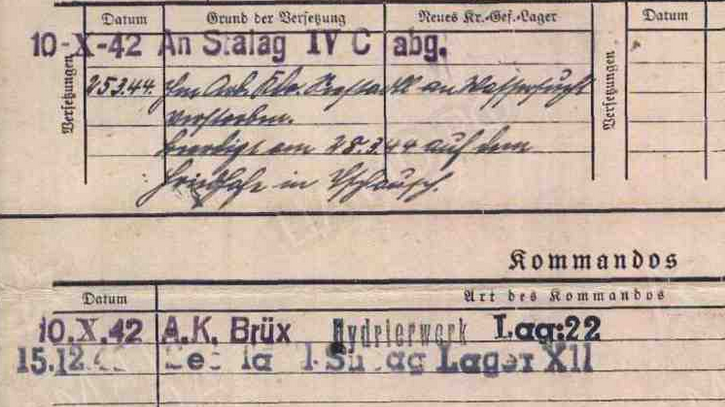 Datum Grund der Versetzung Neues Kr.-Gef.-Lager Datum
10-X-42 An Stalag IV C abg.
Versetzungen Versetzungen
25.3.44. Im an Wassersucht
verstorben.
Beerdigt am 28.3.44 auf dem
Friedhofe in Tschausch.
Kommandos
Datum Art des Kommandos
10.X.42 A.K. Brüx Hydrierwerk Lag:22
15.12. Lager XII